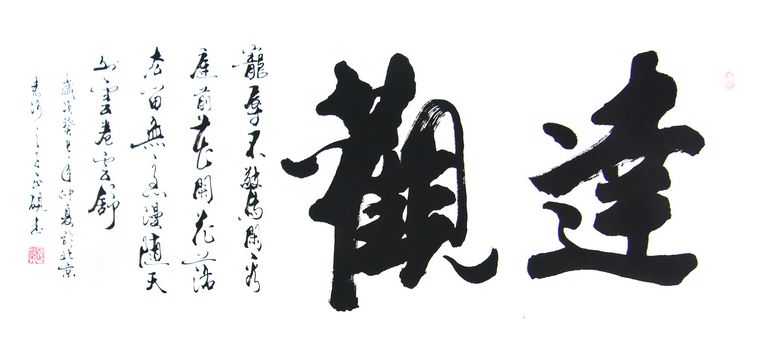 達觀
寵辱不驚閑看
庭前花開花落
去留無意漫隨天
外雲卷雲舒
歲次癸巳年仲夏於北京